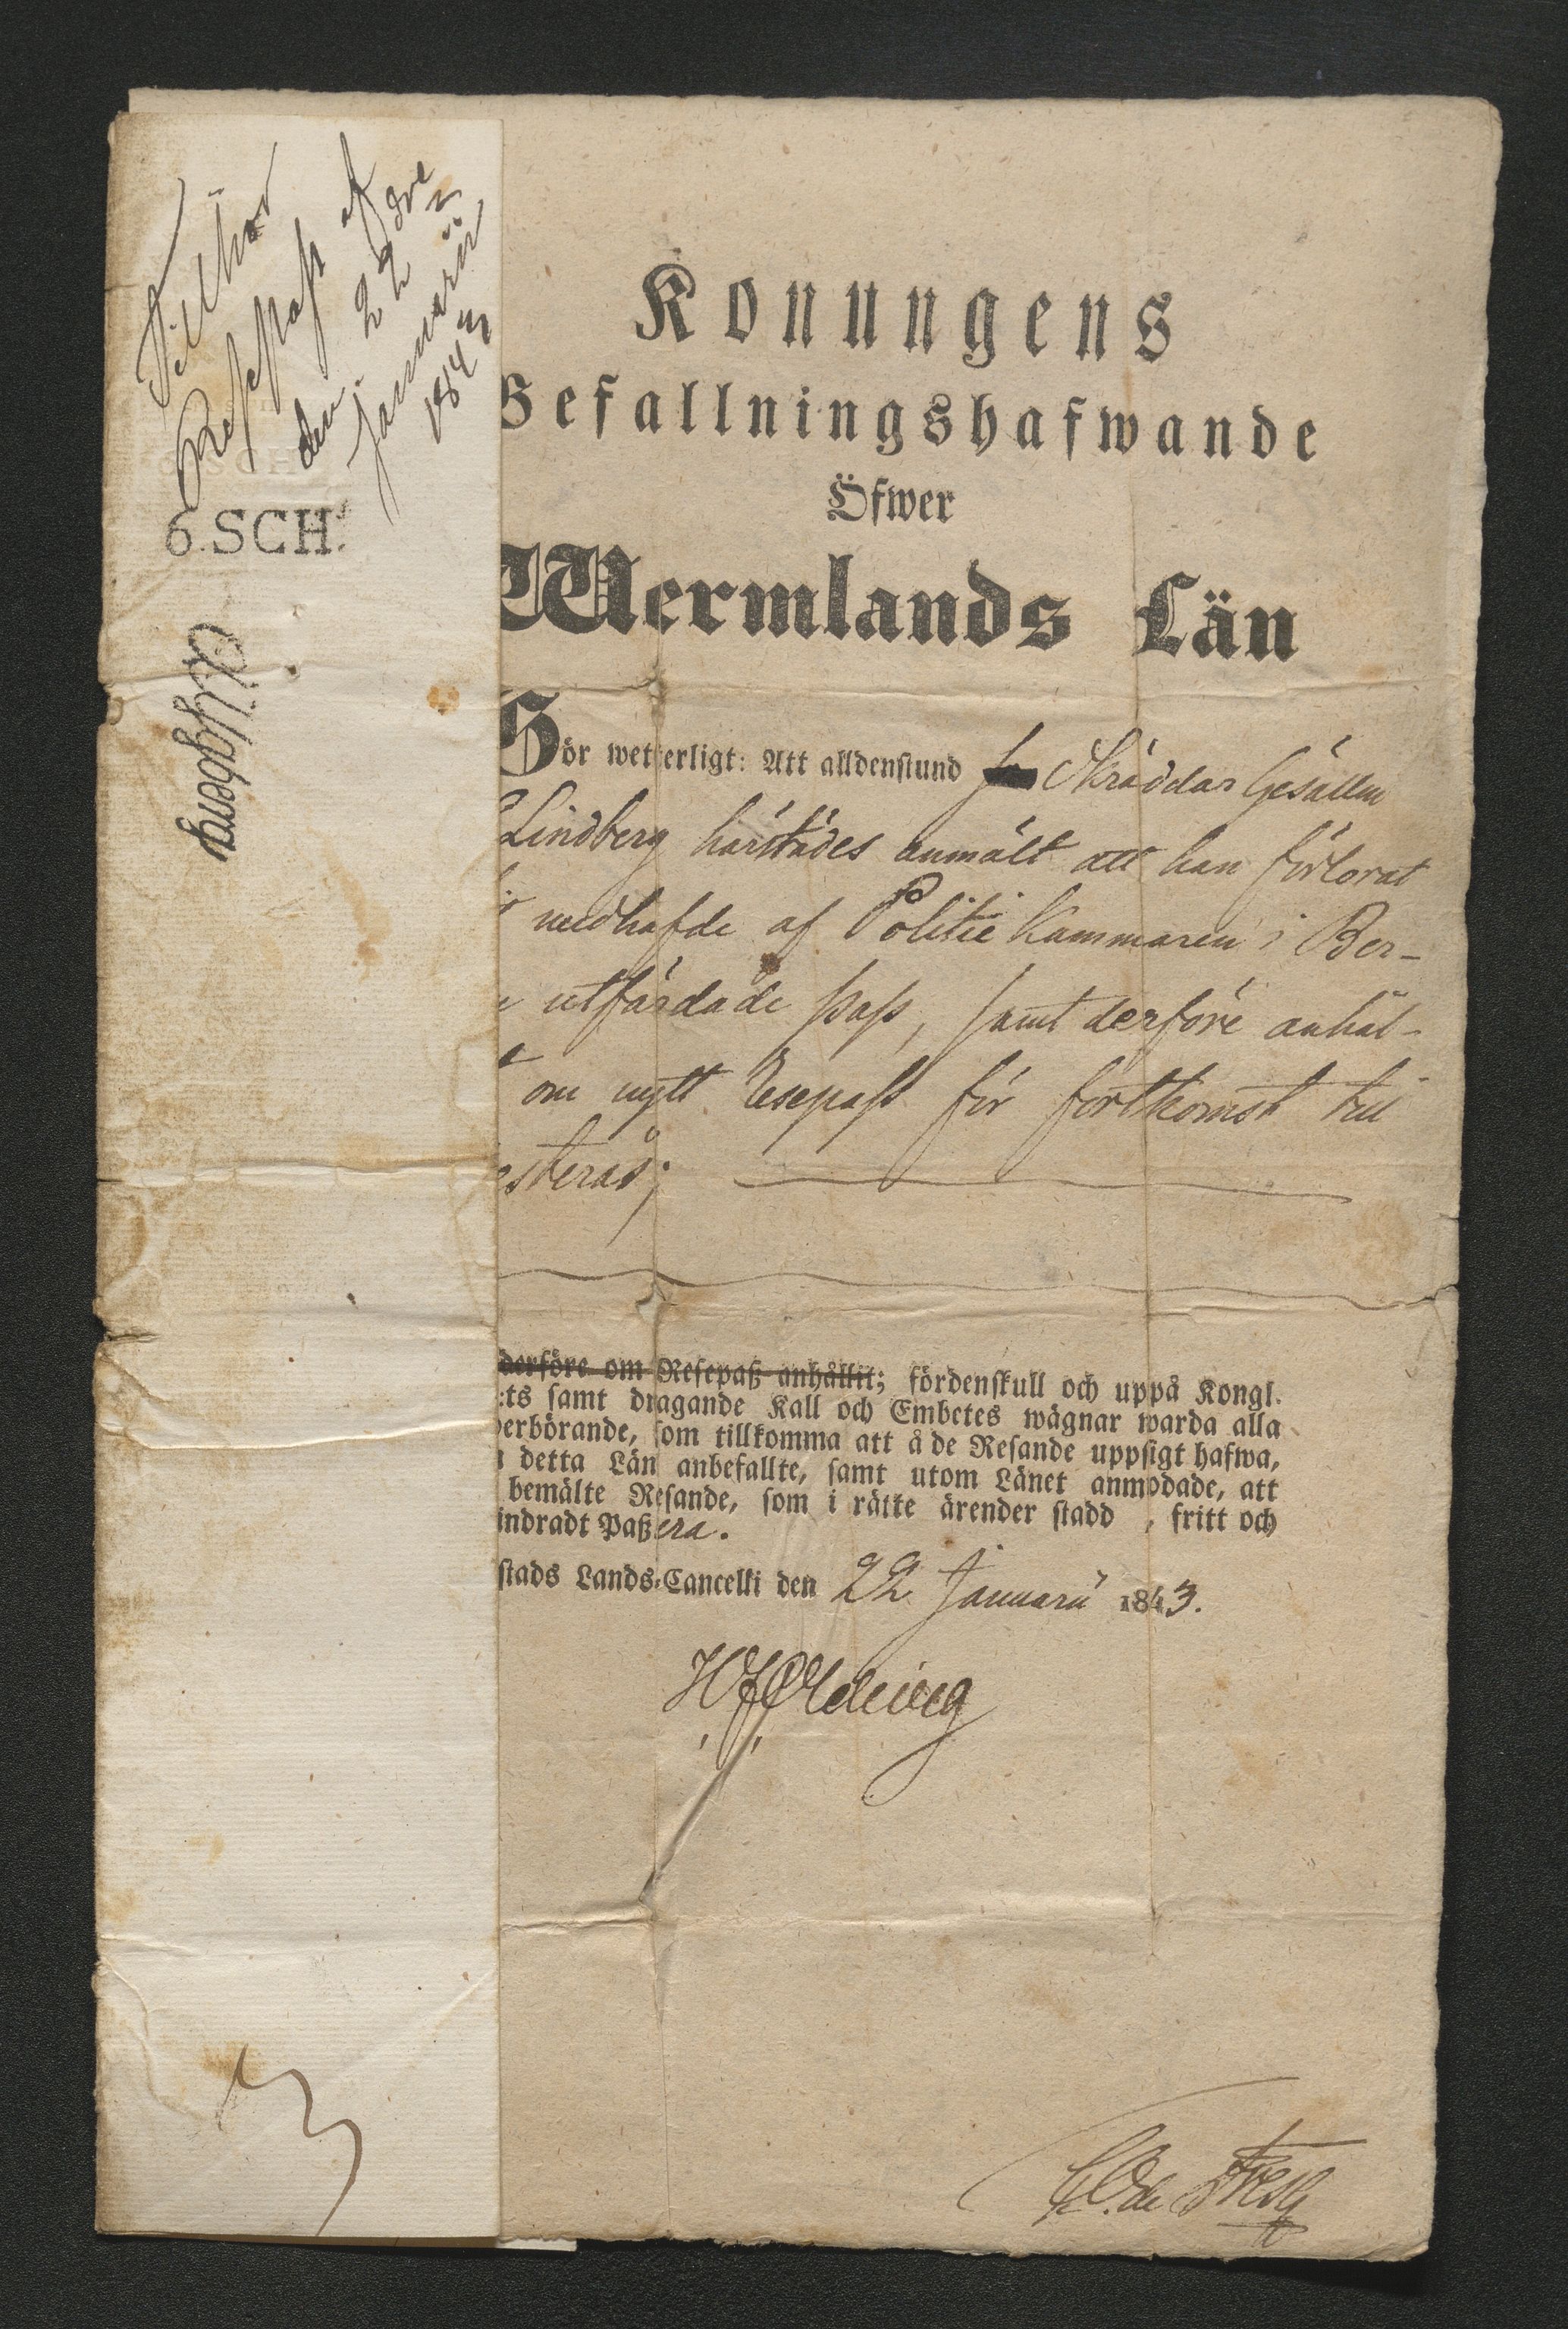 Tillhör
Resepass af
den 22dre
Januarii
1843
6.SCH.
Konungens
Befallningshafwande
Öfwer
Wermlands Län
Gör wetterligt: Att alldenstund Skräddar Gesällen
Lindberg härstädes anmält att han förlorat
medhafde af Politie Kammaren i Ber-
utfärdade pass, samt derföre anhål-
t om nytt Resepass för fortkomst till
esterås;
derföre om Resepaß anhållit; fördenskull och uppå Kongl.
:ts samt dragande Kall och Embetes wägnar warda alla
erbörande, som tillkomma att å de Resande uppsigt hafwa,
detta Län anbefallte, samt utom Länet anmodade, att
bemälte Resande, som i rätte ärender stadd , fritt och
indradt Paßera.
stads Lands-Cancelli den 22 Januarii 1843.